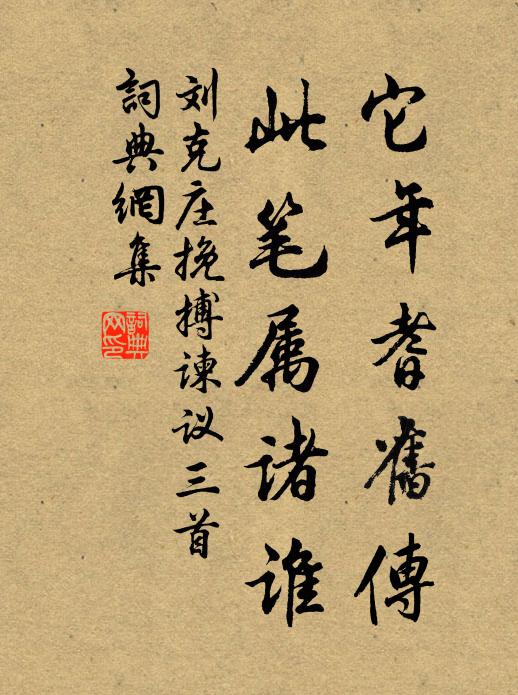 它年耆舊傳
此笔属诸谁
刘克庄挽搏谏议三首
詞典網集
詞典網印